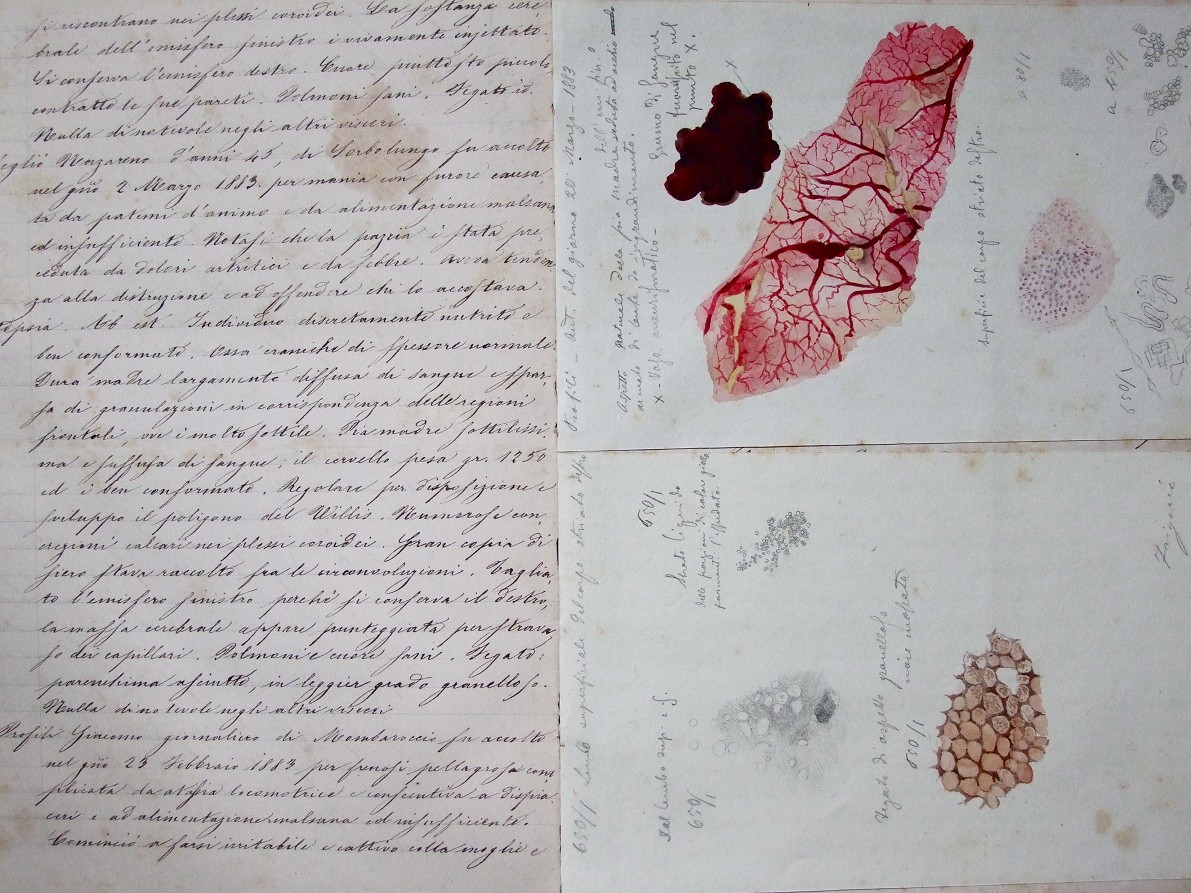 si riscontrano nei plessi coroidei. La sostanza cere
brale dell'emisfero sinistro è vivamente injettata.
Si conserva l'emisfero destro. Cuore piuttosto piccolo
contratte le sue pareti. Polmoni sani. Fegato id.
Nulla di notevole negli altri visceri.
Nazareno d'anni 45, di Sorbolungo fu accolto
nel giõ 2 Marzo 1883. per mania con furore causa,
ta da patemi d'animo e da alimentazione malsana
ed insufficiente. Notasi che la pazzia è stata pre,
ceduta da dolori artritici e da febbre. Aveva tenden
za alla distruzione e ad offendere chi lo accostava.
Ab est. Individuo discretamente nutrito e
ben conformato. Ossa craniche di spessore normale
Dura madre largamente diffusa di sangue e spar,
sa di granulazioni in corrispondenza delle regioni
frontali, ove è molto sottile. Pia madre sottilissi,
ma e suffusa di sangue, il cervello pesa gr. 1250
ed è ben conformato. Regolare per disposizione e
sviluppo il poligono del Willis. Numerose con,
crezioni calcari nei plessi coroidei. Gran copia di
siero stava raccolto fra le circonvoluzioni. Taglia,
to l'emisfero sinistro perchè si conserva il destro,
la massa cerebrale appare punteggiata per strava
so dei capillari. Polmoni e cuore sani. Fegato:
parenchima asciutto, in leggier grado granelloso.
Nulla di notevole negli altri visceri
Profili Giacomo giornaliero di Mombaroccio fu accolto
nel giõ 23 Febbraio 1883 per frenosi pellagrosa com
plicata da atassia locomotrice e consecutiva a dispia,
ceri e ad alimentazione malsana ed insufficiente.
Cominciò a farsi irritabile e cattivo colla moglie e
Profili - Aut. del giorno 20 Marzo - 1883
Aspetto naturale della pia madre veduta ad occhio
armato di lente d'ingrandimento.
x - Vaso aneurismatico -
Grumo di sangue
nel
punto x.
x
Superficie del corpo striato destro.
a 80/1
a 650/1
650/1
650/1 Lembo superficiale del corpo striato
650/1
Strato
delle porzioni di color giallo
Dal lembo sup. e
650/1
Fegato di aspetto granelloso
noce moscata
650/1